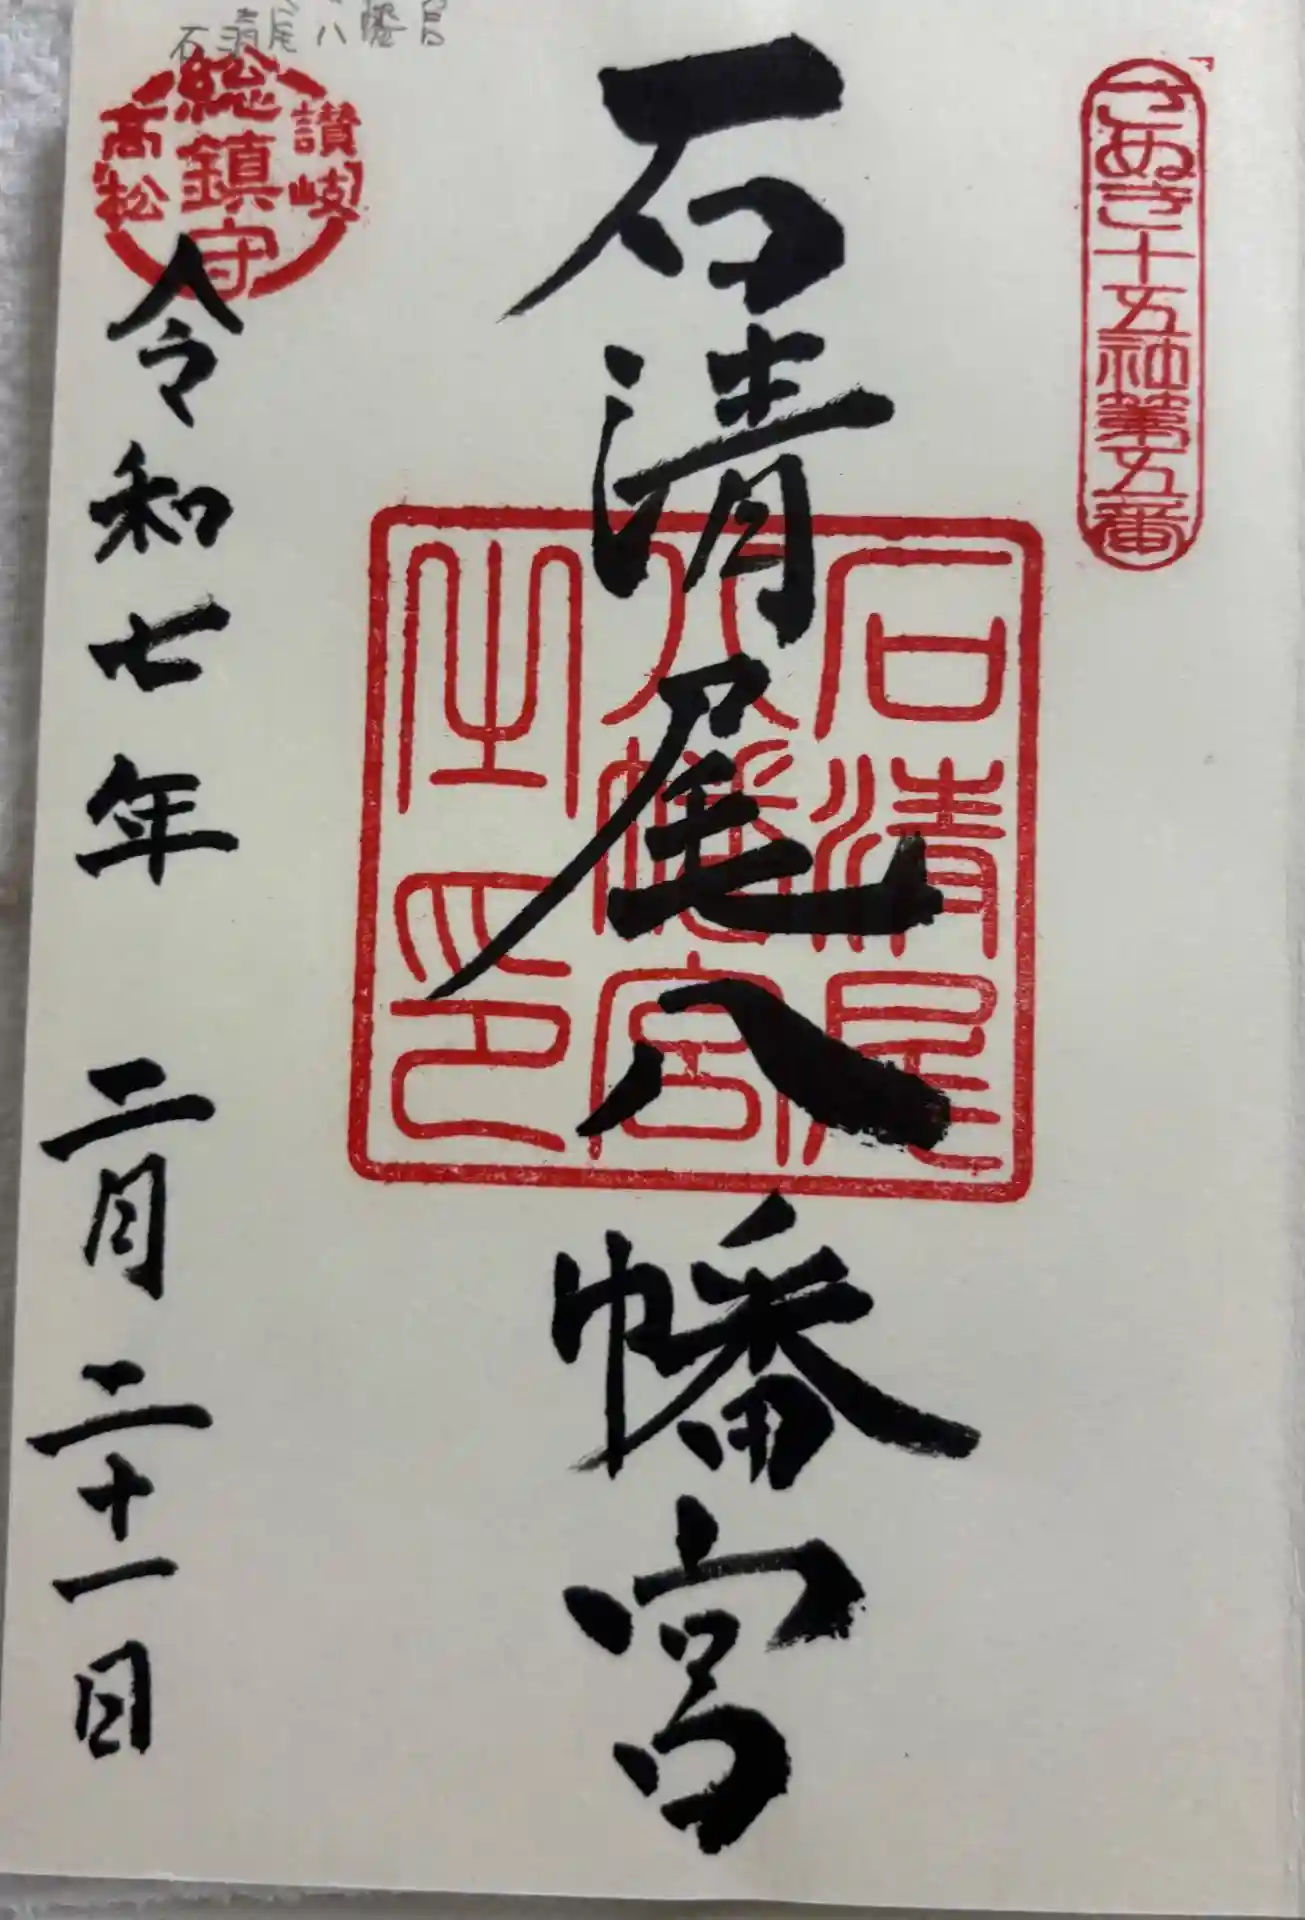 石清尾八幡宮
さぬき十五社第五番
石清尾八幡宮
石清尾
八幡宮
之印
讃岐
総鎮守
高松
令和七年 二月二十一日